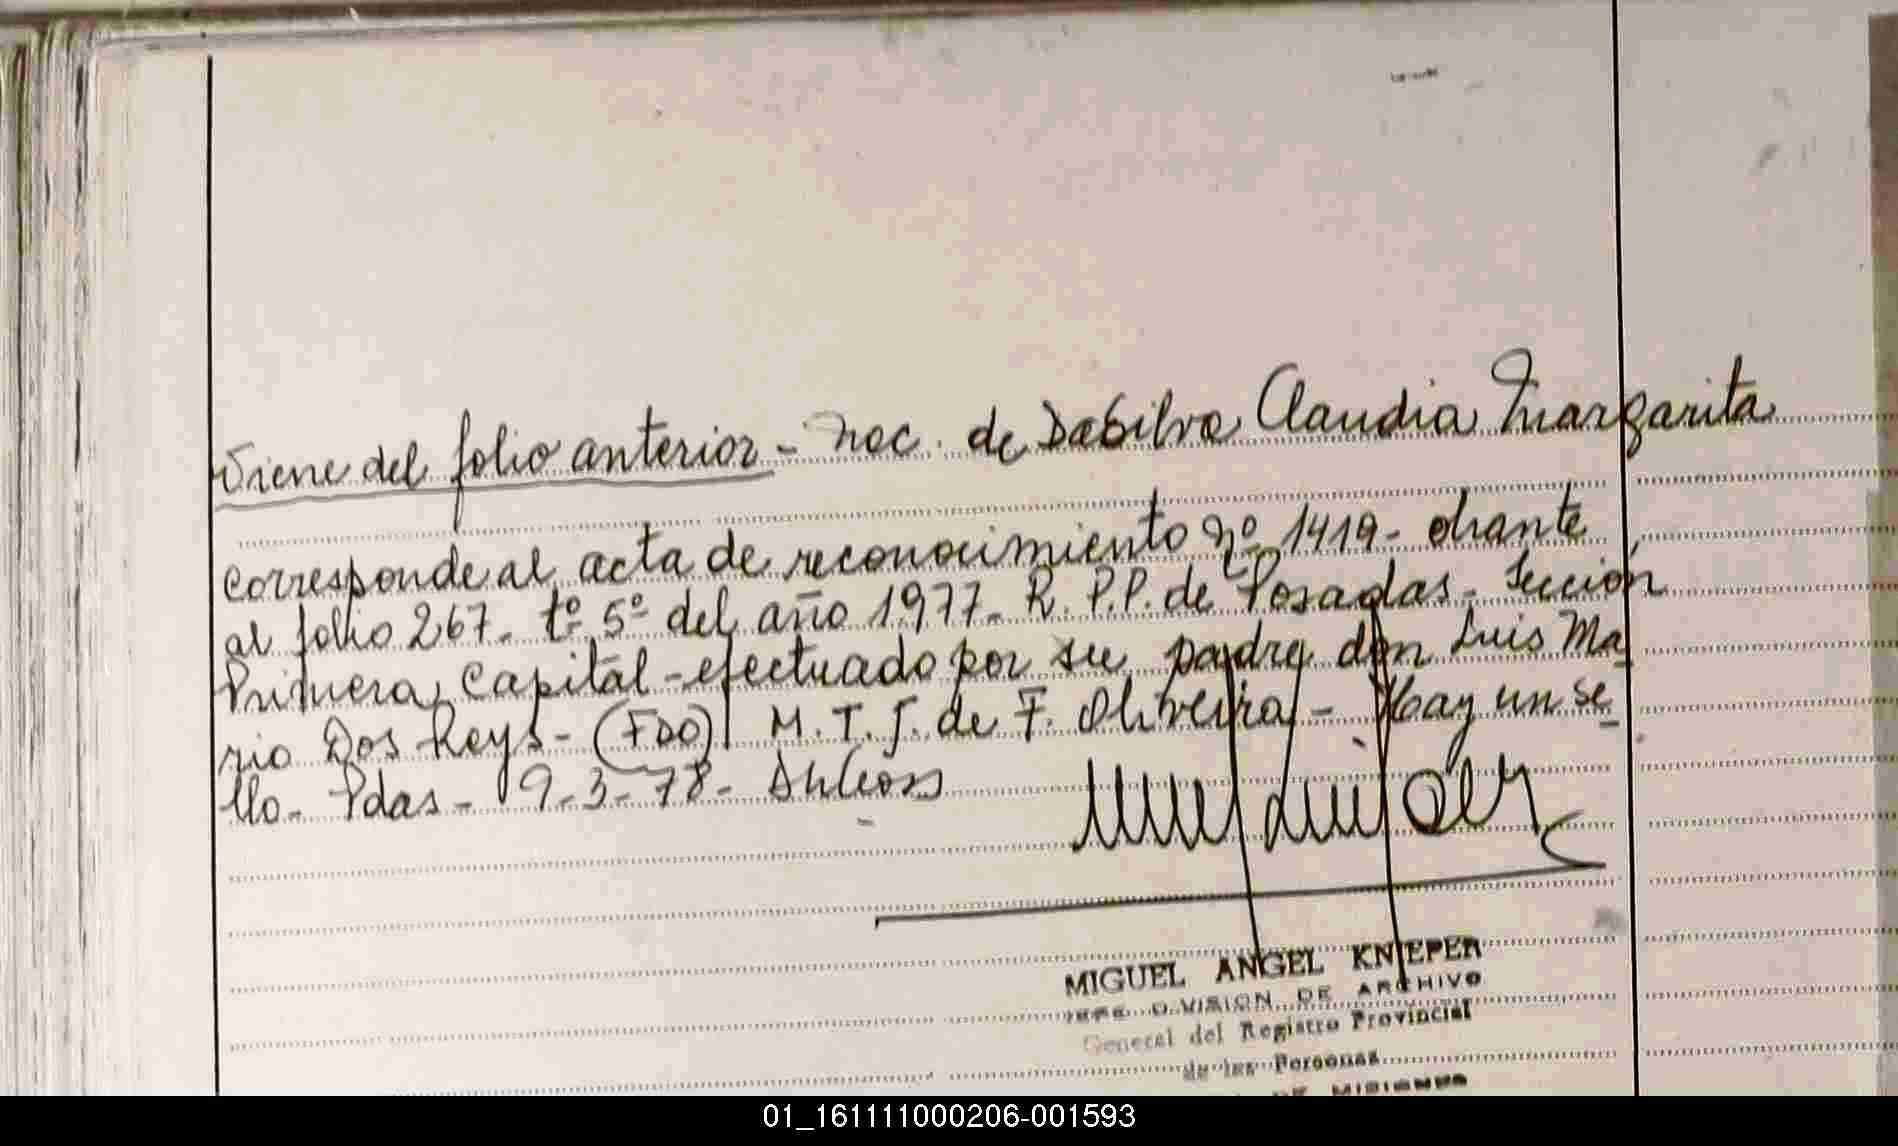 Viene del folio anterior - Nac. de DaSilva Claudia Margarita
corresponde al acta de reconocimiento Nº 1419 - obrante
al folio 267 - tº 5º del año 1977 - R. P.P. de Posadas - Sección
Primera Capital - efectuado por su padre don Luis Ma
rio Dos Reys - (FDO) M. T. J. de F. Oliveira - Hay un se
llo - Pdas - 9-3-78 -
MIGUEL ANGEL KNIEPER
JEFE DIVISION DE ARCHIVO
General del Registro Provincial
de las Personas
DE MISIONES
01_161111000206-001593